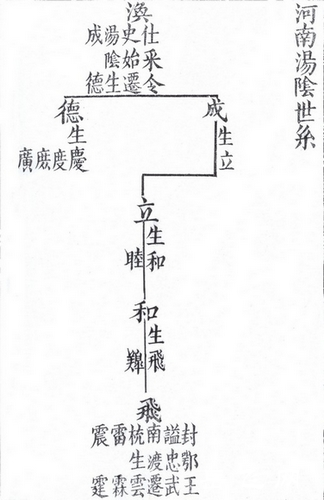 河南湯陰世系
渙
仕采令
史始遷
湯陰生
成德
成
生立
德
生慶
度
庶
廣
立
生和
睦
和
生飛
飛
封鄂王
諡忠武
南渡遷
杭生雲
雷霖
震霆